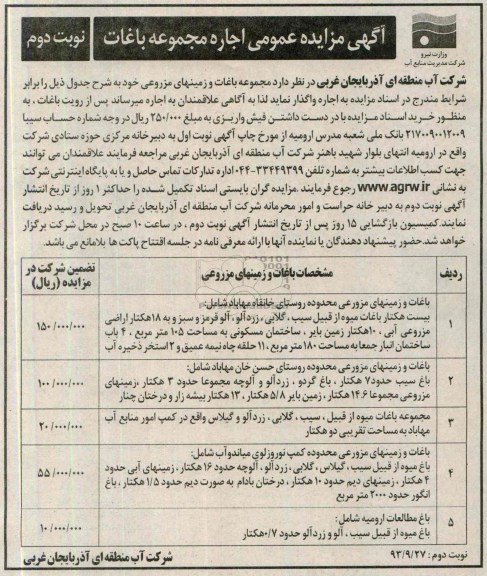 آگهی مزایده عمومی اجاره مجموعه باغات
نوبت دوم
وزارت نیرو
شرکت مدیریت منابع آب
شرکت آب منطقه ای آذربایجان غربی در نظر دارد مجموعه باغات و زمینهای مزروعی خود به شرح جدول ذیل را برابر
شرایط مندرج در اسناد مزایده به اجاره واگذار نماید لذا به آگاهی علاقمندان به اجاره میرساند پس از رویت باغات ، به
منظور خرید اسناد مزایده با در دست داشتن فیش واریزی به مبلغ ۲۵۰/۰۰۰ ریال در وجه شماره حساب سیبا
۲۱۷۰۰۹۰۱۲۰۰۹ بانک ملی شعبه مدرس ارومیه از مورخ چاپ آگهی نوبت اول به دبیرخانه مرکزی حوزه ستادی شرکت
واقع در ارومیه انتهای بلوار شهید باهنر شرکت آب منطقه ای آذربایجان غربی مراجعه فرمایند علاقمندان می توانند
جهت کسب اطلاعات بیشتر به شماره تلفن ۳۳۴۴۹۳۹۹-۰۴۴ اداره تدارکات تماس حاصل و یا به پایگاه اینترنتی شرکت
به نشانی www.agrw.ir رجوع فرمایند .مزایده گران بایستی اسناد تکمیل شده را حداکثر ۱۰ روز از تاریخ انتشار
آگهی نوبت دوم به دبیر خانه حراست و امور محرمانه شرکت آب منطقه ای آذربایجان غربی تحویل و رسید دریافت
نمایند.کمیسیون بازگشایی ۱۵ روز پس از تاریخ انتشار آگهی نوبت دوم ، در ساعت ۱۰ صبح در محل شرکت برگزار
خواهد شد.حضور پیشنهاد دهندگان یا نماینده آنها با ارائه معرفی نامه در جلسه افتتاح پاکت ها بلامانع می باشد.
ردیف
مشخصات باغات و زمینهای مزروعی
تضمین شرکت در
مزایده (ریال)
۱
باغات و زمینهای مزروعی محدوده روستای خانقاه مهاباد شامل:
بیست هکتار باغات میوه از قبیل سیب ، گلابی ، زردآلو ، آلو قرمز و سبز و به ۱۸هکتار اراضی
مزروعی آبی ، ۱۰هکتار زمین بایر ، ساختمان مسکونی به مساحت ۱۰۵ متر مربع ، ۴ باب
ساختمان انبار جمعا به مساحت ۱۸۰ متر مربع ، ۱۱ حلقه چاه نیمه عمیق و ۲ استخر ذخیره آب
۱۵۰/۰۰۰/۰۰۰
۲
باغات و زمینهای مزروعی محدوده روستای حسن خان مهاباد شامل:
باغ سیب حدود ۷ هکتار ، باغ گردو ، زردآلو و آلوچه مجموعا حدود ۳ هکتار ،زمینهای
مزروعی مجموعا ۱۴.۶ هکتار ، زمین بایر ۵/۸ هکتار ، ۱۳ هکتار بیشه زار و درختان چنار
۱۰۰/۰۰۰/۰۰۰
۳
مجموعه باغات میوه از قبیل ، سیب ، گلابی ، زردآلو و گیلاس واقع در کمپ امور منابع آب
مهاباد به مساحت تقریبی دو هکتار
۲۰/۰۰۰/۰۰۰
۴
باغات و زمینهای مزروعی محدوده کمپ نوروزلوی میاندوآب شامل:
باغ میوه از قبیل سیب ، گیلاس ، گلابی ، زردآلو ، آلوچه حدود ۱۶ هکتار ، زمینهای آبی حدود
۴ هکتار ، زمینهای دیم حدود ۱۰ هکتار ، درختان بادام به صورت دیم حدود ۱/۵ هکتار ، باغ
انگور حدود ۲۰۰۰ متر مربع
۵۵/۰۰۰/۰۰۰
۵
باغ مطالعات ارومیه شامل:
باغ میوه از قبیل سیب ، آلو و زردآلو حدود ۰/۷هکتار
۱۰/۰۰۰/۰۰۰
نوبت دوم : ۹۳/۹/۲۷
شرکت آب منطقه ای آذربایجان غربی